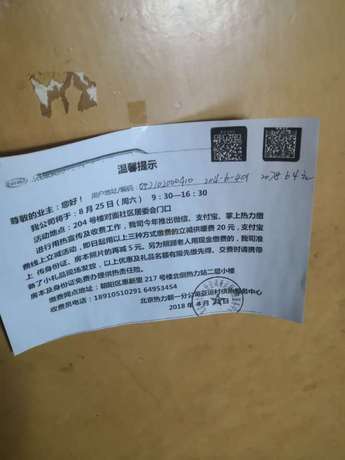 温馨提示
用户地址/编码: 092102000410 204-6-401
尊敬的业主:您好!
我公司将于:8月25日(周六) 9:30—16:30
活动地点:204号楼对面社区居委会门口
进行用热宣传及收费工作,我司今年推出微信、支付宝、掌上热力缴
费线上立减活动,即日起用以上三种方式缴费的立减供暖费20元,支付宝
上传身份证、房本照片的再减5元。另为照顾老人用现金缴费的,我司准
备了小礼品现场发放,以上优惠及礼品名额有限先缴先得。交费时请携带
房本及身份证免费办理供热责任险。
缴费网点地址:朝阳区惠新里217号楼北侧热力站二层小楼
收费员电话:18910510291 64953454
北京热力朝一分公司亚运村供热服务中心
2018年